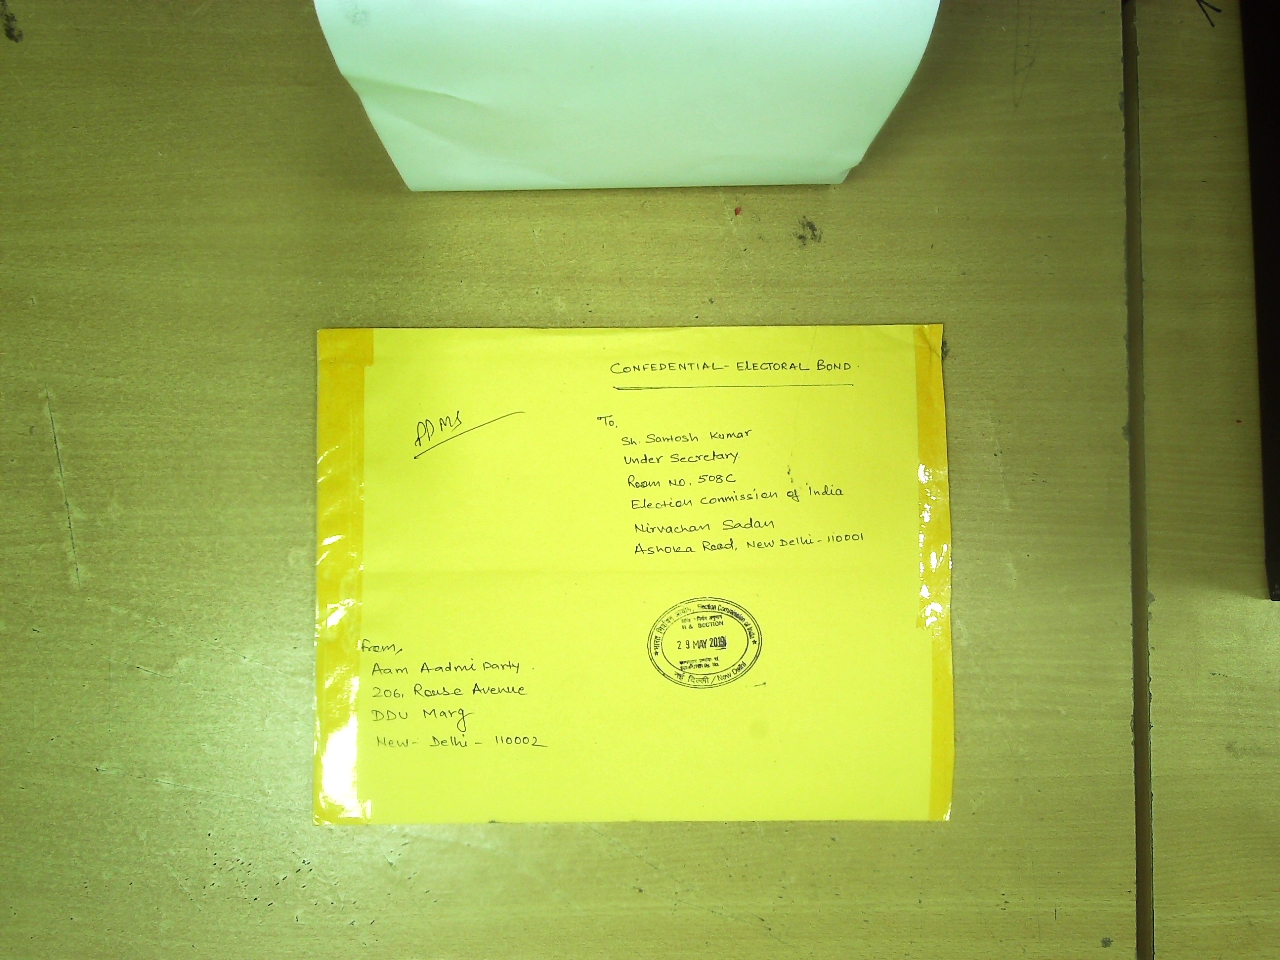 CONFEDENTIAL - ELECTORAL BOND.
PPMS
To,
Sh. Santosh Kumar
Under Secretary
Room No. 508C
Election Commission of India
Nirvachan Sadan
Ashoka Road, New Delhi - 110001
भारत निर्वाचन आयोग, Election Commission of India
R & I SECTION
29 MAY 2019
नई दिल्ली / New Delhi
From,
Aam Aadmi Party.
206, Rouse Avenue
DDU Marg
New - Delhi - 110002